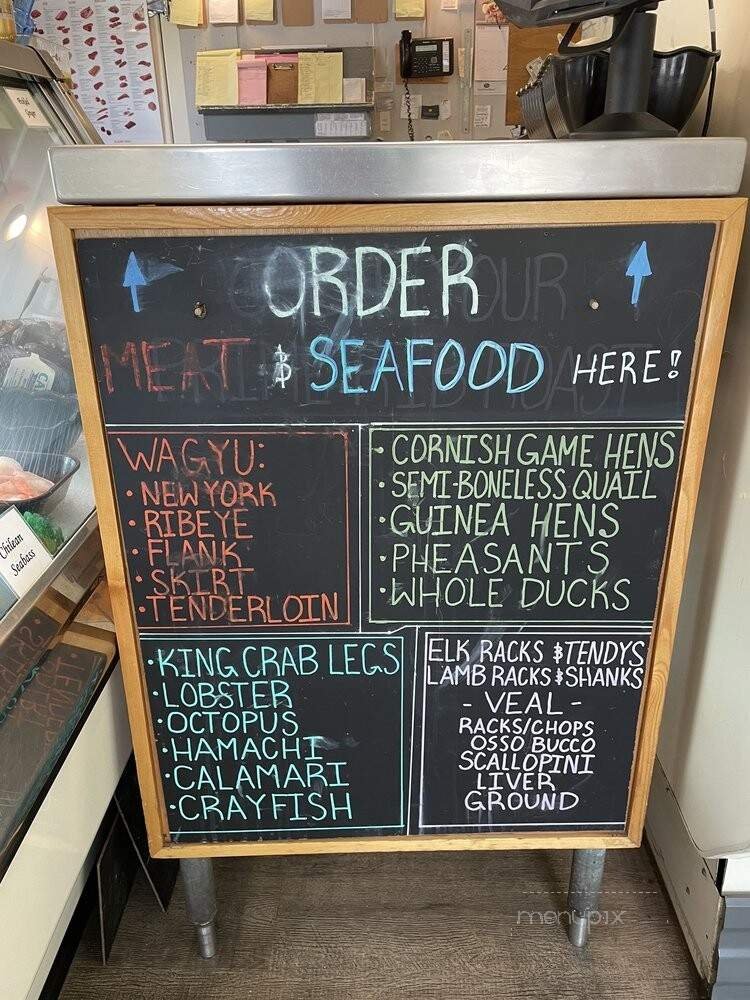 ORDER
MEAT & SEAFOOD HERE!
WAGYU:
• NEW YORK
• RIBEYE
• FLANK
• SKIRT
• TENDERLOIN
• CORNISH GAME HENS
• SEMI-BONELESS QUAIL
• GUINEA HENS
• PHEASANTS
• WHOLE DUCKS
• KING CRAB LEGS
• LOBSTER
• OCTOPUS
• HAMACHI
• CALAMARI
• CRAYFISH
ELK RACKS & TENDYS
LAMB RACKS & SHANKS
- VEAL -
RACKS/CHOPS
OSSO BUCCO
SCALLOPINI
LIVER
GROUND
Chilean
Seabass
menupix